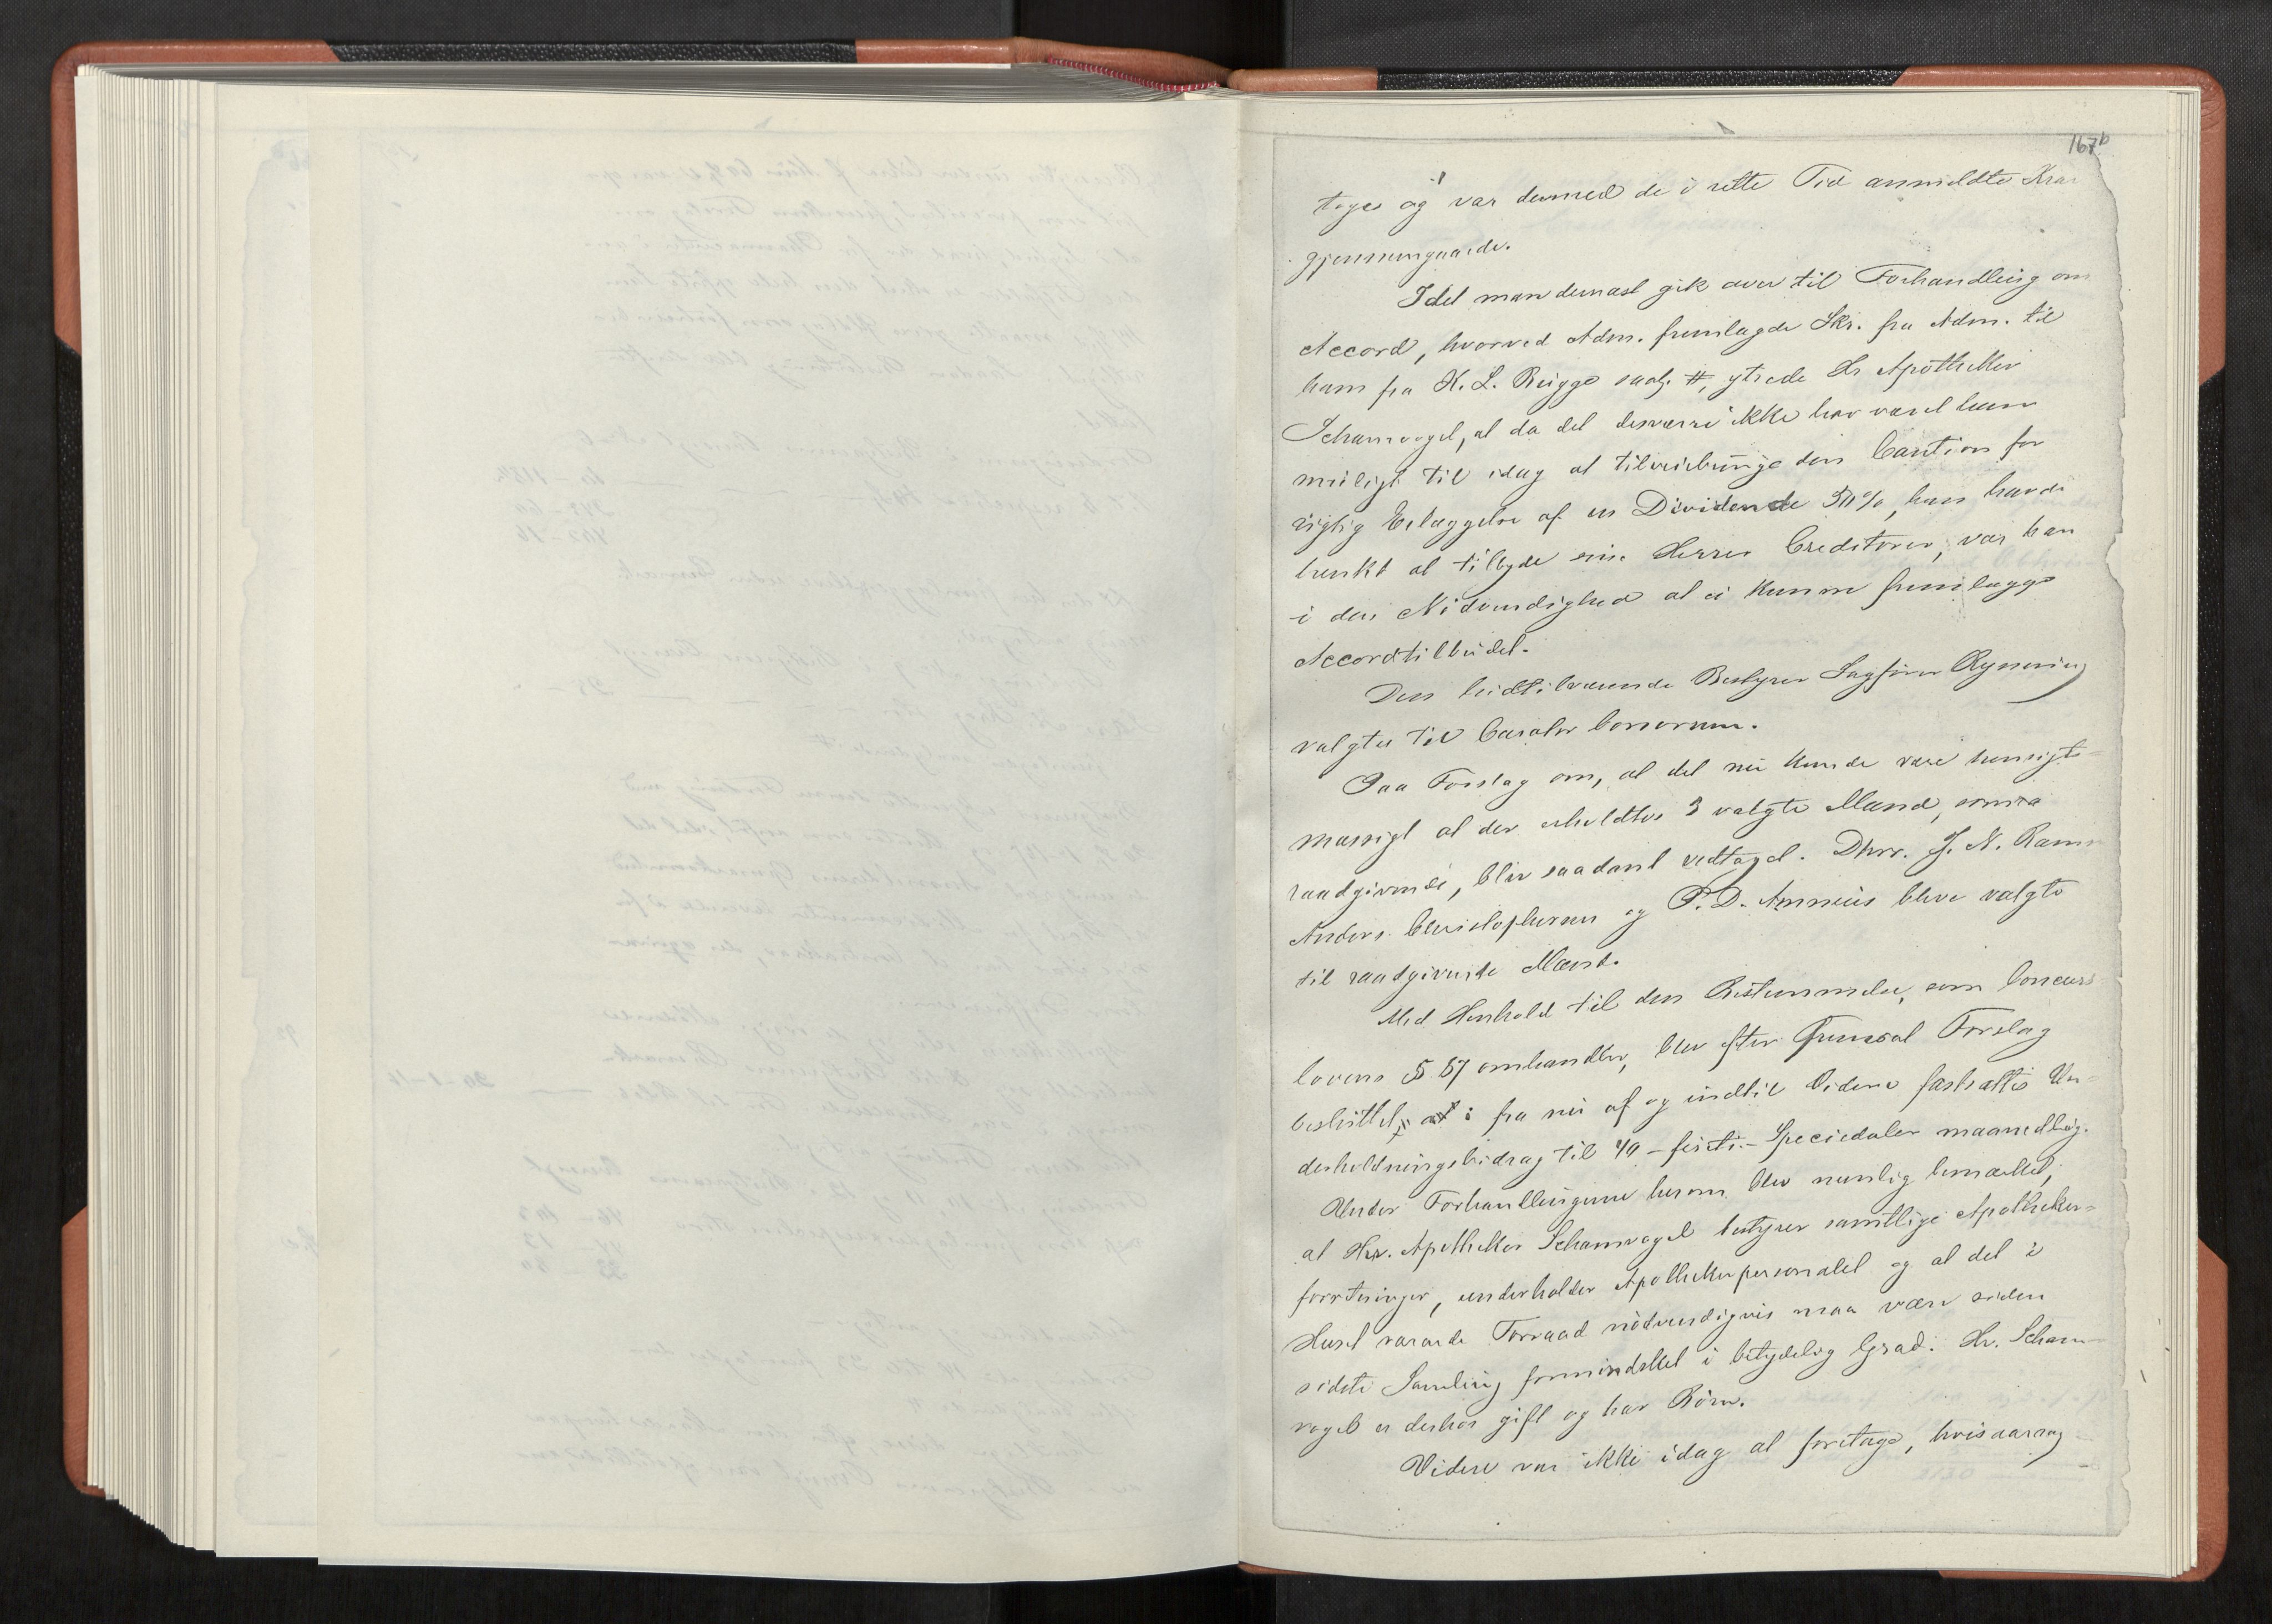 167b
toges og var dermed de i rette Tid anmeldte Krav
gjennemgaaede.
Idet man dernæst gik over til Forhandling om
Accord, hvorved Adm. fremlagde Skr. fra Adm. til
ham fra K. L. Bugge saal. #, ytrede Hr Apotheker
Schamvogel, at da det desværre ikke har været ham
muligt til idag at tilveiebringe den Caution for
rigtig Erlæggelse af en Dividende 50%, han havde
tænkt at tilbyde sine Herrer Creditorer, var han
i den Nødvendighed at ei kunne fremlægge
Accordtilbudet.
Den hidtilværende Bestyrer Sagfører Rynning
valgtes til Curator bonorum.
Paa Forslag om, at det nu kunde være hensigts-
mæssigt at der erholdtes 3 valgte Mænd, som
raadgivende, blev saadant vedtaget. Dhrr. J. N. Ramm
Anders Christophersen og P. D. Amnéus bleve valgte
til raadgivende Mænd.
Med Henhold til den Bestemmelse, som Concurs
lovens § 57 omhandler, blev efter fremsat Forslag
besluttet, at: fra nu af og indtil Videre fastsattes Un-
derholdningsbidrag til 40 - firti - Speciedaler maanedlig.
Under Forhandlingerne herom blev nemlig bemærket,
at Hr. Apotheker Schamvogel bestyrer samtlige Apotheker-
forretninger, underholder Apothekerpersonalet og at det i
Huset værende Forraad nødvendigvis maa være siden
sidste Samling formindsket i betydelig Grad. Hr. Scham-
vogel er derhos gift og har Børn.
Videre var ikke idag at foretage, hvisaarsag